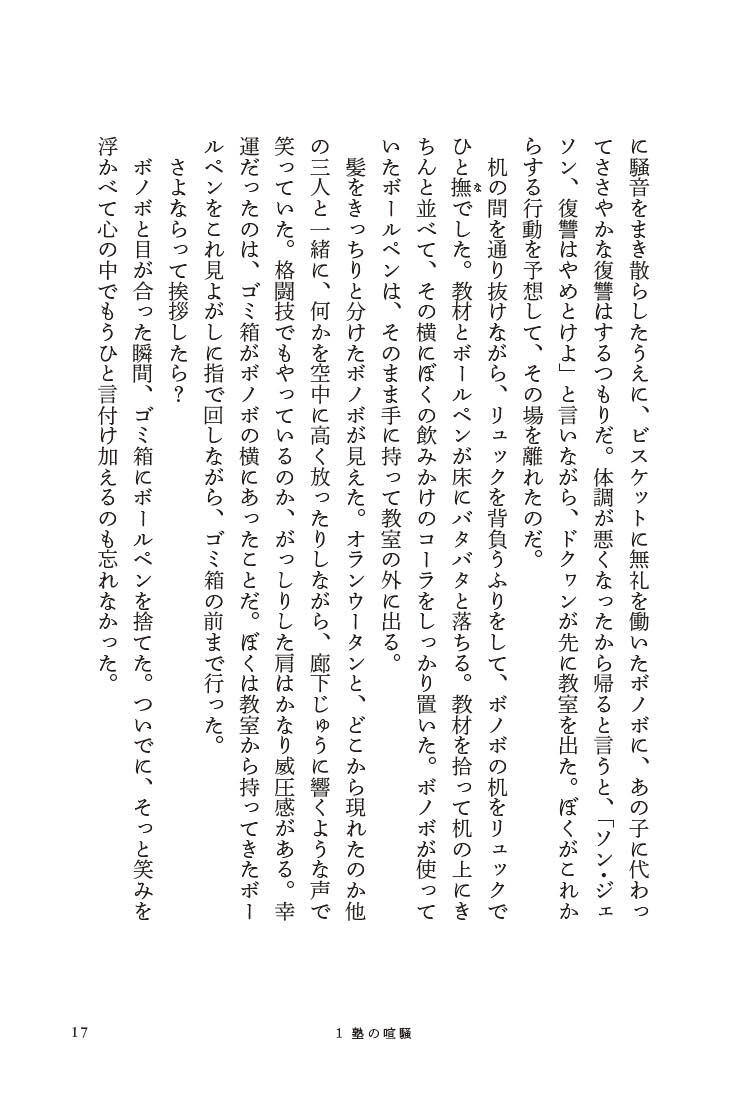 に騒音をまき散らしたうえに、ビスケットに無礼を働いたボノボに、あの子に代わっ
てささやかな復讐はするつもりだ。体調が悪くなったから帰ると言うと、「ソン・ジェ
ソン、復讐はやめとけよ」と言いながら、ドクヮンが先に教室を出た。ぼくがこれか
らする行動を予想して、その場を離れたのだ。
机の間を通り抜けながら、リュックを背負うふりをして、ボノボの机をリュックで
ひと撫でした。教材とボールペンが床にバタバタと落ちる。教材を拾って机の上にき
ちんと並べて、その横にぼくの飲みかけのコーラをしっかり置いた。ボノボが使って
いたボールペンは、そのまま手に持って教室の外に出る。
髪をきっちりと分けたボノボが見えた。オランウータンと、どこから現れたのか他
の三人と一緒に、何かを空中に高く放ったりしながら、廊下じゅうに響くような声で
笑っていた。格闘技でもやっているのか、がっしりした肩はかなり威圧感がある。幸
運だったのは、ゴミ箱がボノボの横にあったことだ。ぼくは教室から持ってきたボー
ルペンをこれ見よがしに指で回しながら、ゴミ箱の前まで行った。
さよならって挨拶したら？
ボノボと目が合った瞬間、ゴミ箱にボールペンを捨てた。ついでに、そっと笑みを
浮かべて心の中でもうひと言付け加えるのも忘れなかった。
な
1 塾の喧騒
17